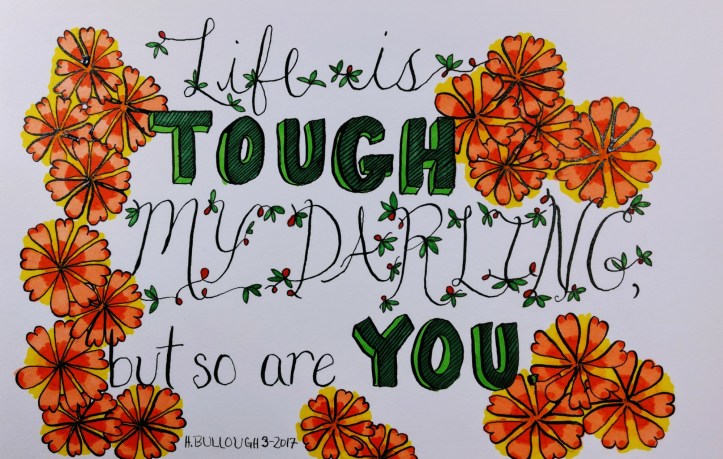 Life is
TOUGH
MY DARLING,
but so are YOU.
H.BULLOUGH 3-2017